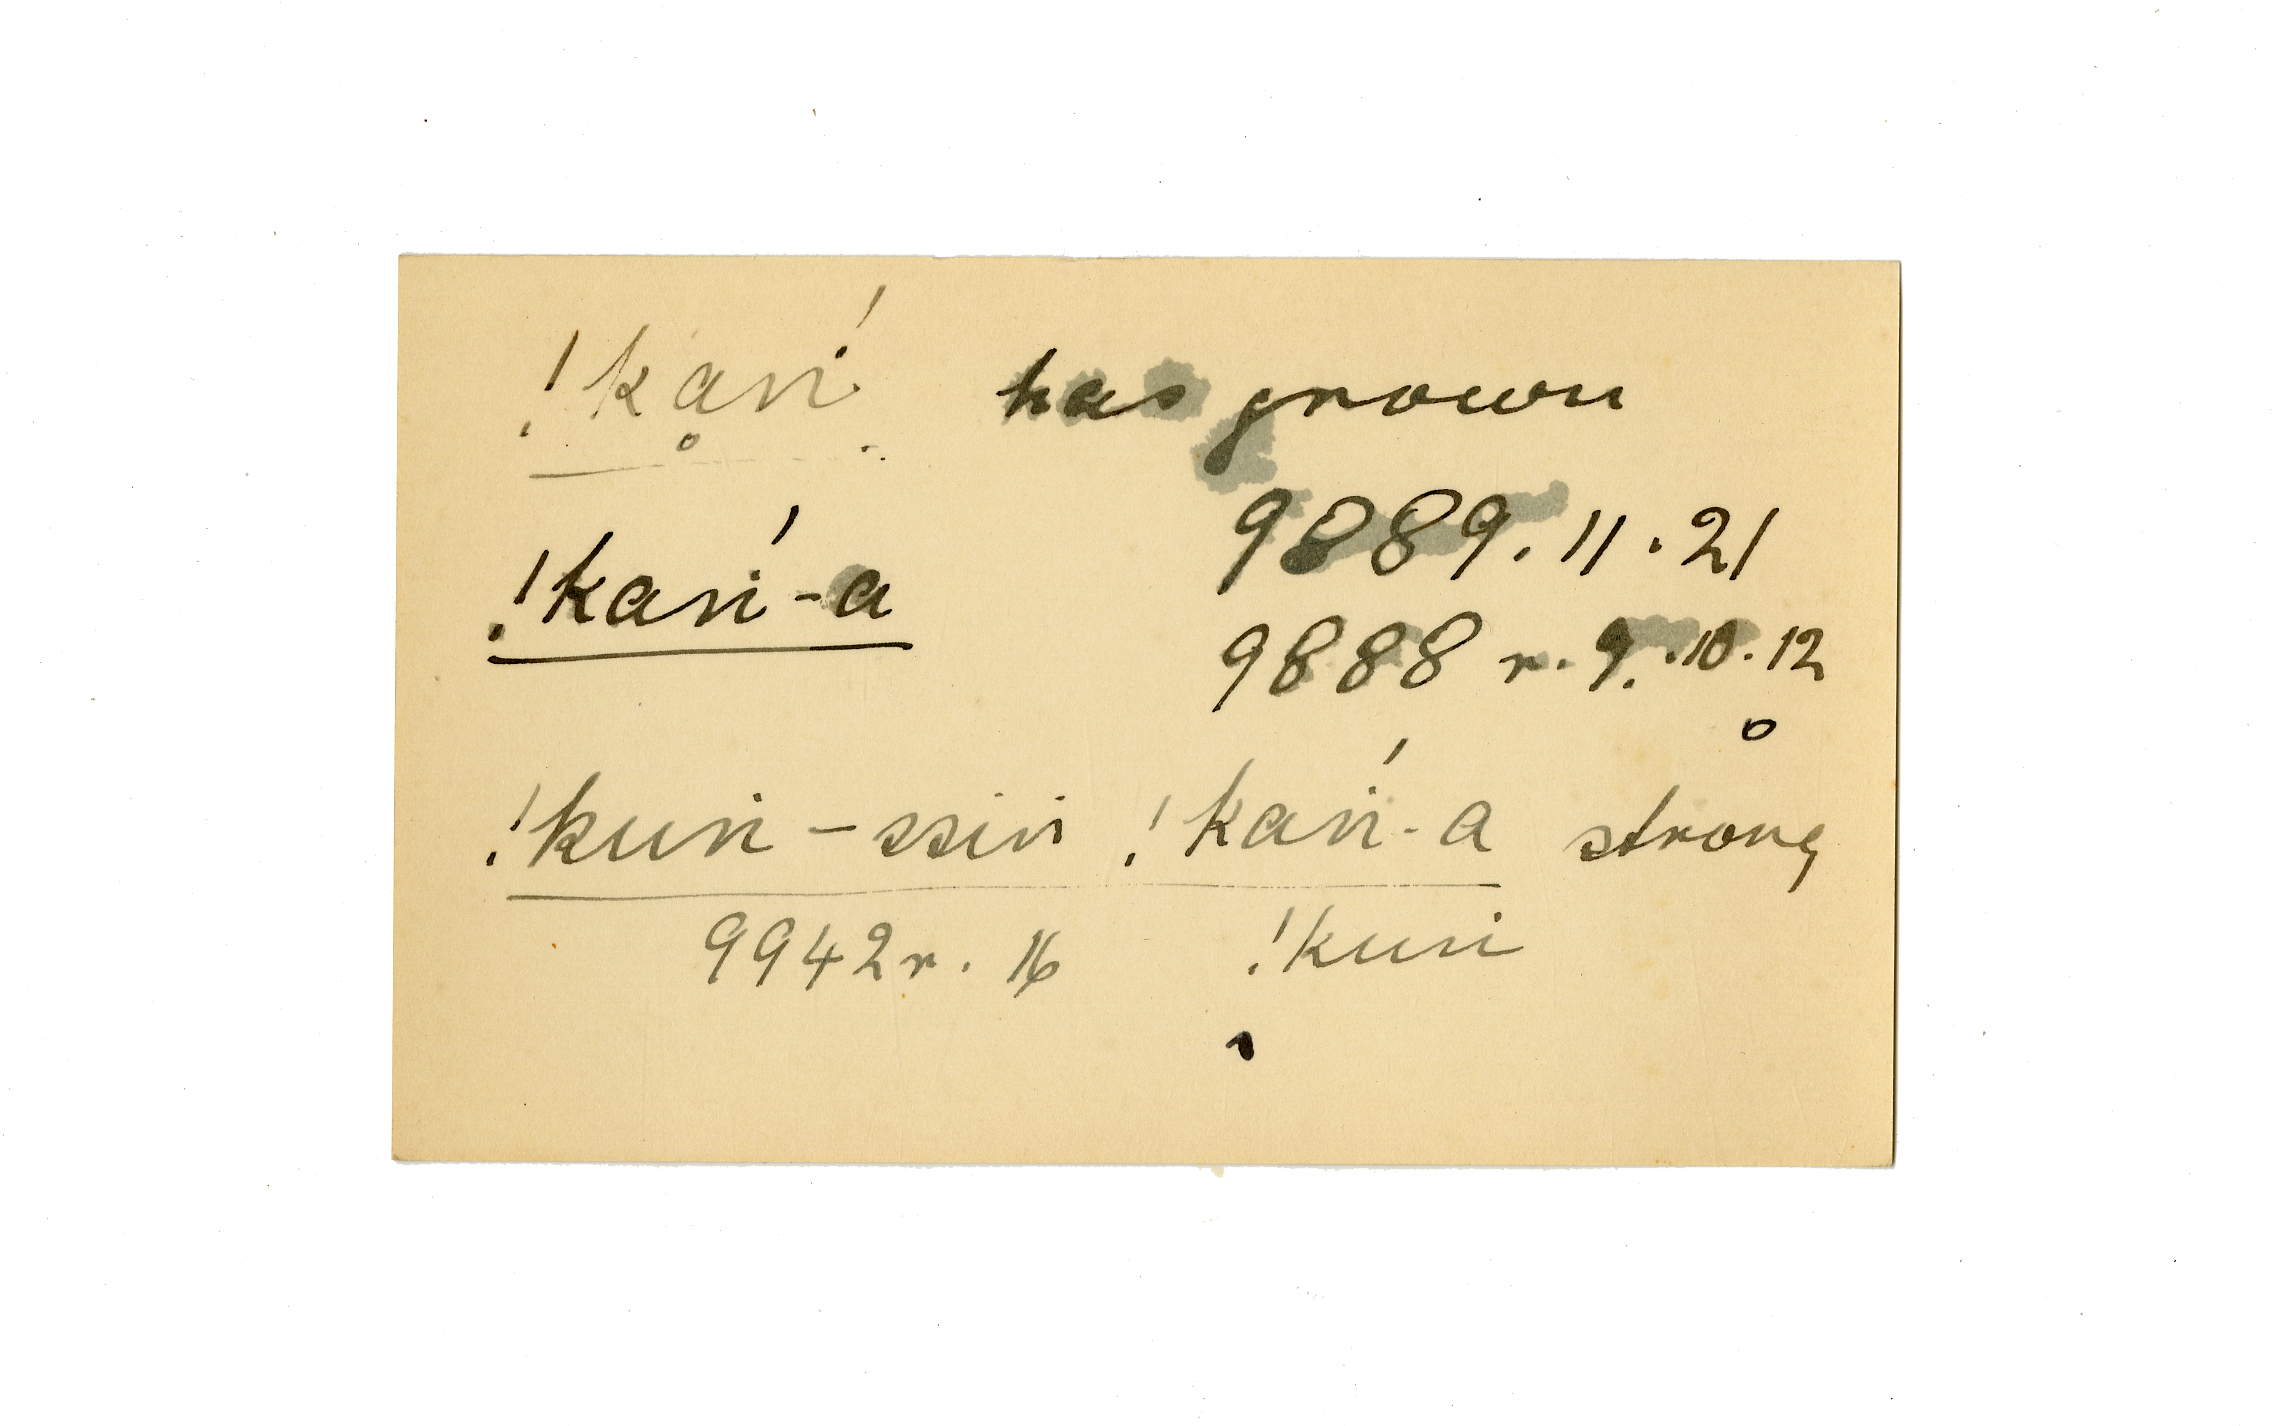 !kạṅ́ has grown
9889.11.21
!kaṅ́-a
9888 r. 9. .10.12
!kuṅ-ssiṅ !kaṅ́-a strong
9942 r. 16 !kuṅ